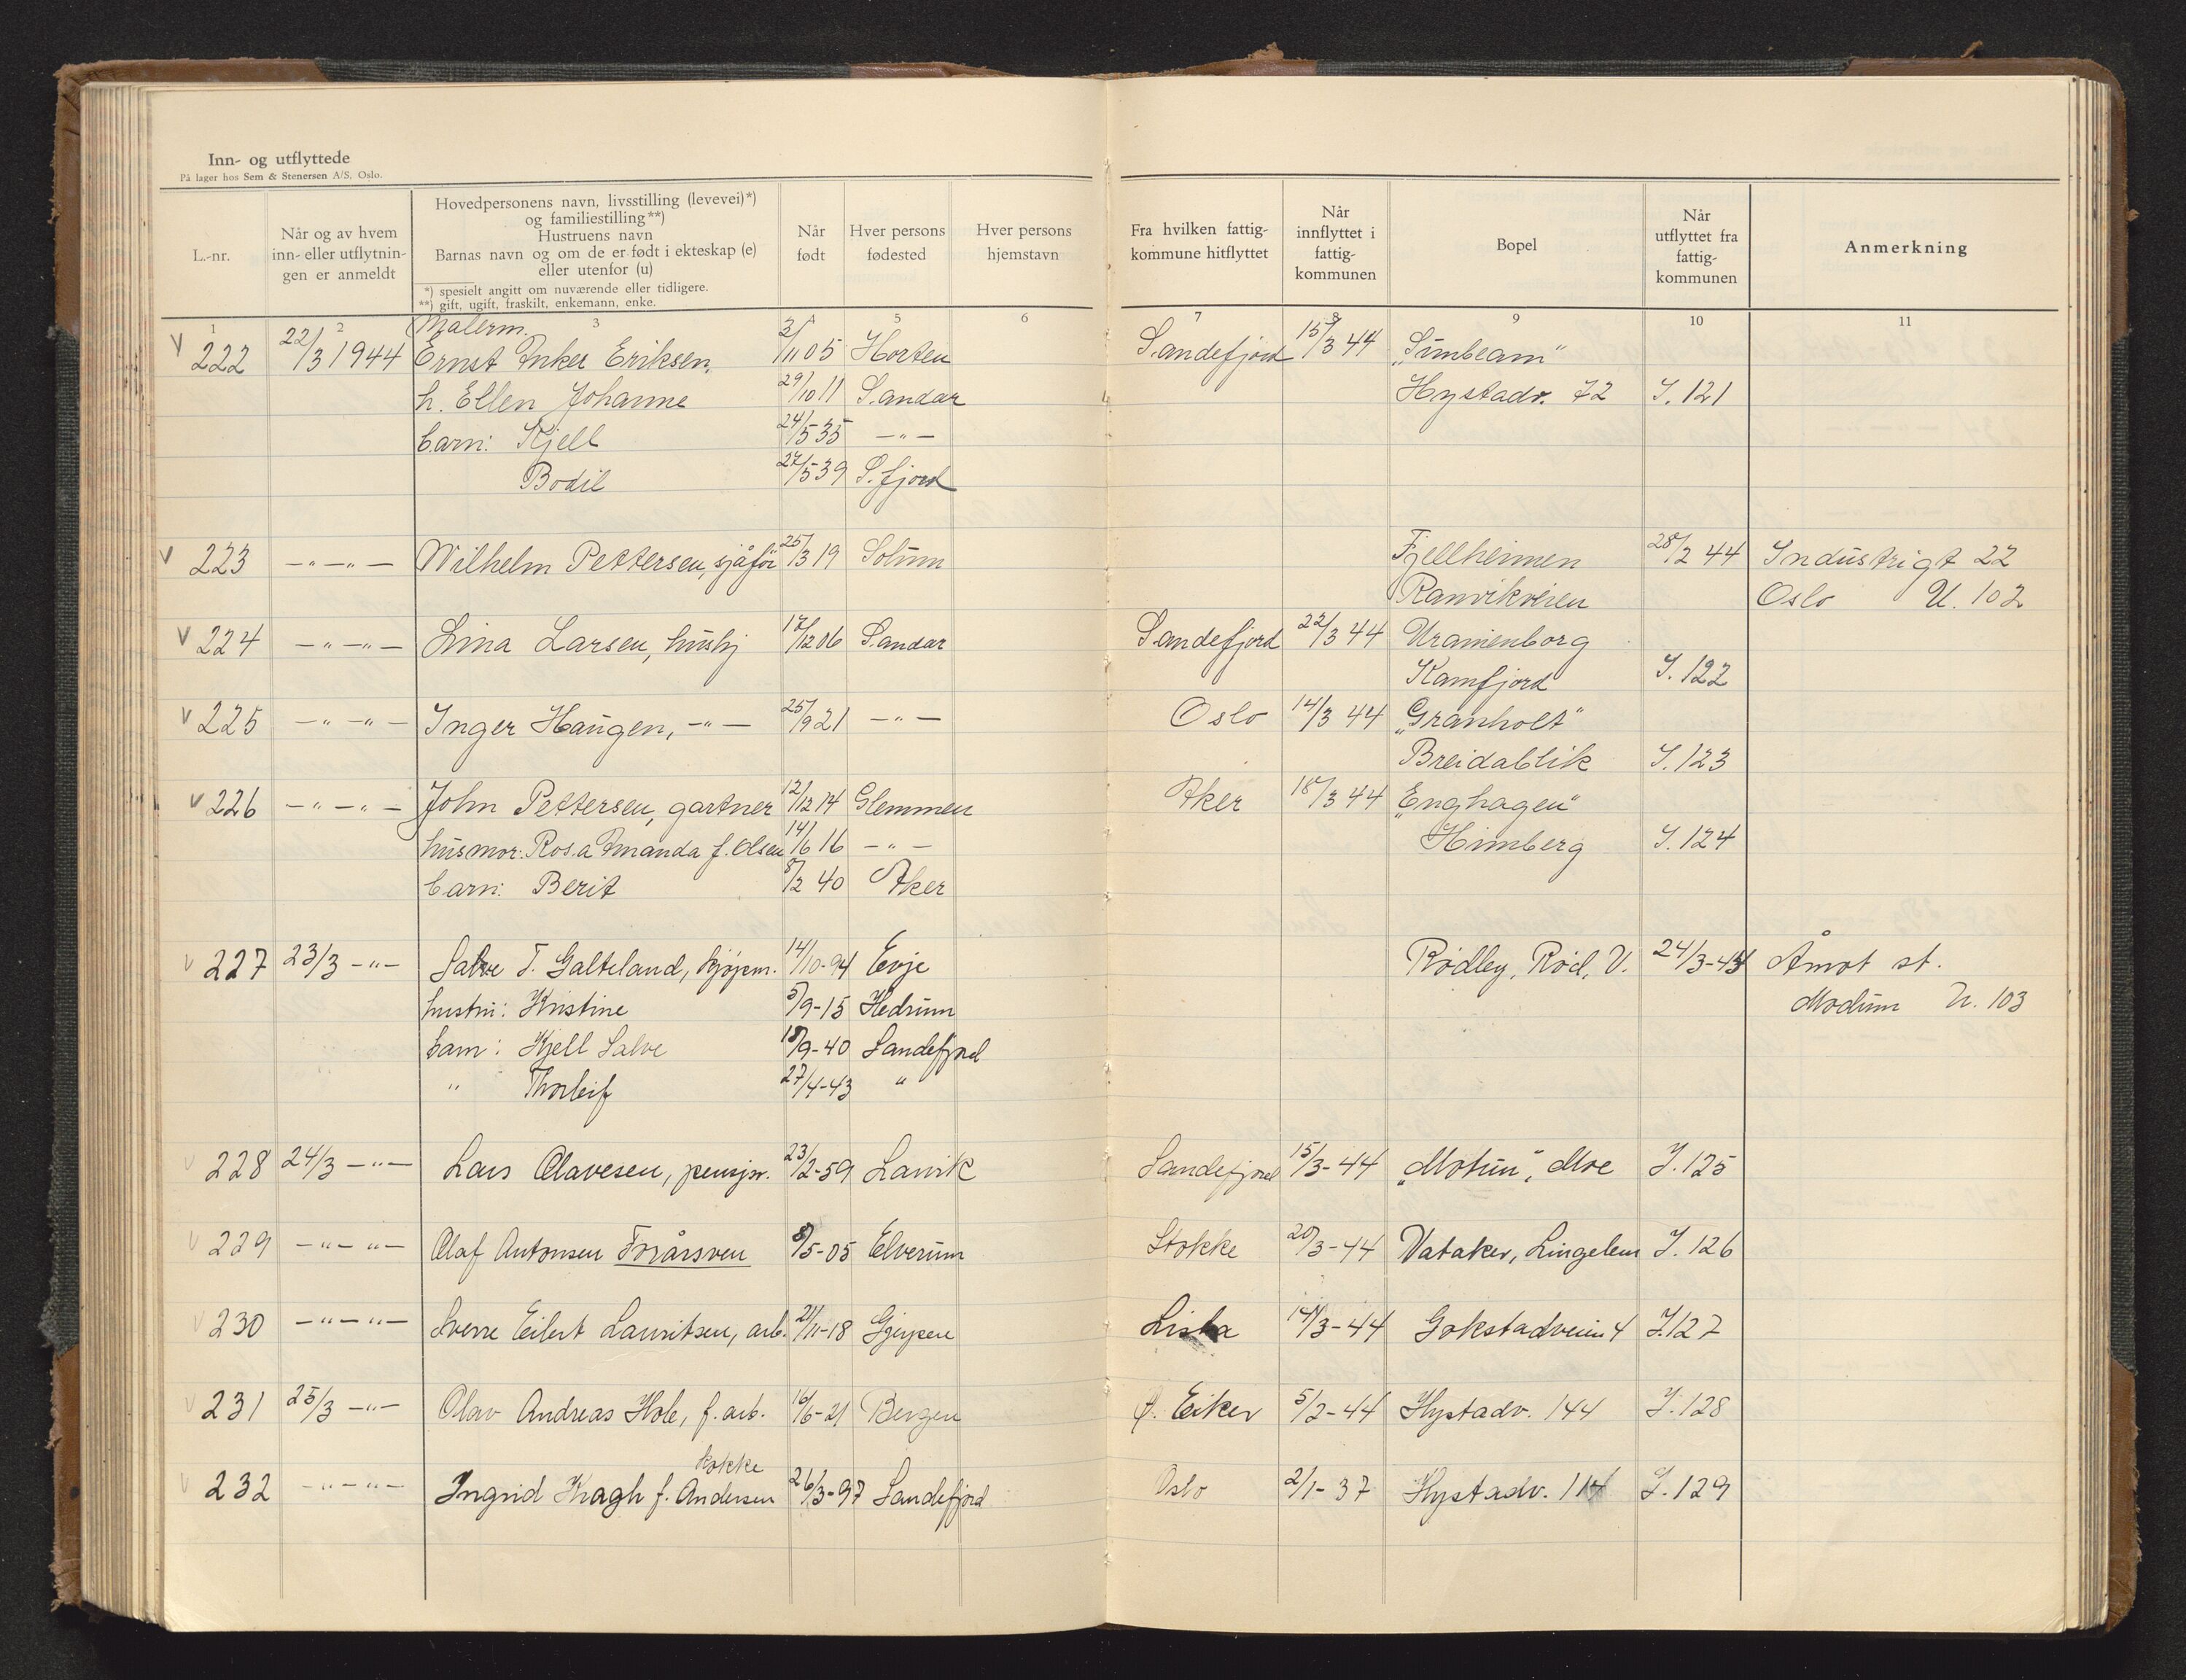 Inn- og utflyttede
På lager hos Sem & Stenersen A/S, Oslo.
L.-nr.
Når og av hvem inn- eller utflytnin-gen er anmeldt
Hovedpersonens navn, livsstilling (levevei)*)
og familiestilling**)
Hustruens navn
Barnas navn og om de er født i ekteskap (e)
eller utenfor (u)
*) spesielt angitt om nuværende eller tidligere.
**) gift, ugift, fraskilt, enkemann, enke.
Når født
Hver persons fødested
Hver persons hjemstavn
Fra hvilken fattig-kommune hitflyttet
Når innflyttet i fattig-kommunen
Bopel
Når utflyttet fra fattig-kommunen
Anmerkning
1 2 3 4 5 6 7 8 9 10 11
Malerm.
V 222 22/3 1944 Ernst Anker Eriksen, 3/11 05 Horten Sandefjord 15/3 44 „Sunbeam"
h. Ellen Johanne 29/10 11 Sandar Hystadv. 72 I. 121
barn: Kjell 24/5 35 —"—
Bodil 27/5 39 S.fjord
V 223 —"—"— Wilhelm Pettersen, sjåfør 25/3 19 Solum Fjellheimen 28/2 44 Industrigt 22
Ranvikveien Oslo U. 102
V 224 —"—"— Lina Larsen, hushj 17/12 06 Sandar Sandefjord 22/3 44 Uranienborg
Kamfjord I. 122
V 225 —"—"— Inger Haugen, —"— 25/9 21 —"— Oslo 14/3 44 „Granholt"
Breidablik I. 123
V 226 —"—"— John Pettersen, gartner 12/12 14 Glemmen Aker 18/3 44 „Enghagen"
husmor: Rosa Amanda f. Olsen 14/6 16 —"— Himberg I. 124
barn: Berit 8/2 40 Aker
V 227 23/3 —"— Salve T. Galteland, kjøpm. 14/10-94 Evje Rødley, Rød, V. 24/3-44 Åmot st.
hustru: Kristine 5/9-15 Hedrum Modum U. 103
barn: Kjell Salve 18/9-40 Sandefjord
" Thorleif 27/4-43 "
V 228 24/3 —"— Lars Olavesen, pensjon. 23/2-59 Larvik Sandefjord 15/3-44 „Motun", Moe I. 125
V 229 —"—"— Olaf Antonsen Forårsven 8/5-05 Elverum Stokke 20/3-44 Vataker, Lingelem I. 126
V 230 —"—"— Sverre Eilert Lauritsen, arb. 21/11-18 Gjerpen Lista 14/3-44 Gokstadveien 4 I. 127
V 231 25/3 —"— Olav Andreas Hole, f. arb. 16/6-21 Bergen Ø. Eiker 5/2-44 Hystadv. 144 I. 128
kokke
V 232 —"—"— Ingrid Kragh f. Andersen 26/3-97 Sandefjord Oslo 2/1-37 Hystadv. 114 I. 129